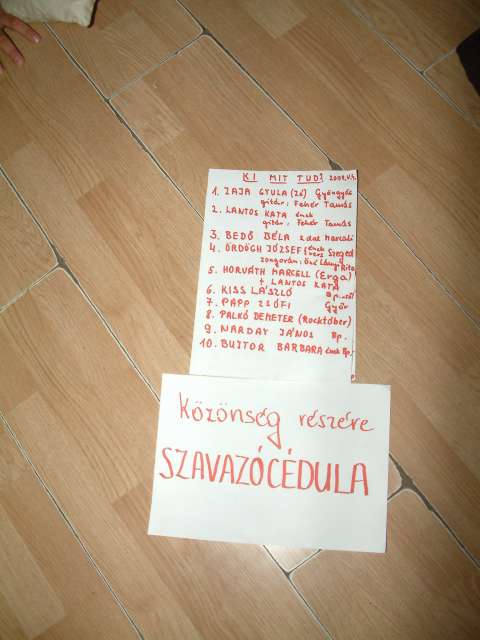 KI MIT TUD? 2009.V.9.
1. ZAJA GYULA (Zé) Gyöngyös
gitár: Fehér Tamás
2. LANTOS KATA ének
gitár: Fehér Tamás
3. BEDŐ BÉLA 2 dal Marcali
4. ÖRDÖGH JÓZSEF (ének vers Szeged
zongorán: Rita
5. HORVÁTH MARCELL (Erga)
+ LANTOS KATA
6. KISS LÁSZLÓ
7. PAPP ZSÓFI Győr
8. PALKÓ DEMETER (Rocktóber)
9. NARDAY JÁNOS Bp.
10. BUJTOR BARBARA ének Bp.
Közönség részére
SZAVAZÓCÉDULA